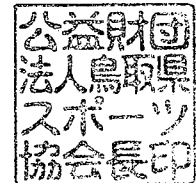 公益財団
法人鳥取県
スポーツ
協会長印